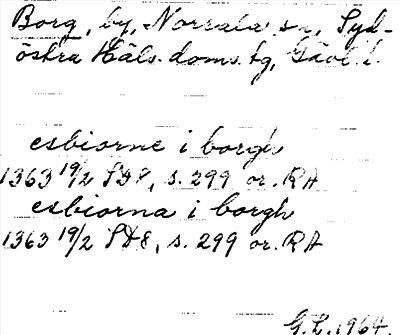 Borg, by, Norrala sn, Syd-
östra Häls. doms. tg, Gävl. l.
esbiorne i borgh
1363 19/2 SD 8, s. 299 or. RA
esbiorna i borgh
1363 19/2 SD 8, s. 299 or. RA
G.L. 1964.